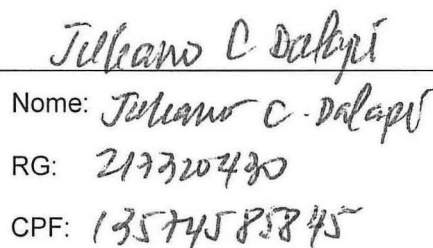 Juliano C Dalapi
Nome: Juliano C. Dalapi
RG: 217320430
CPF: 13574585845